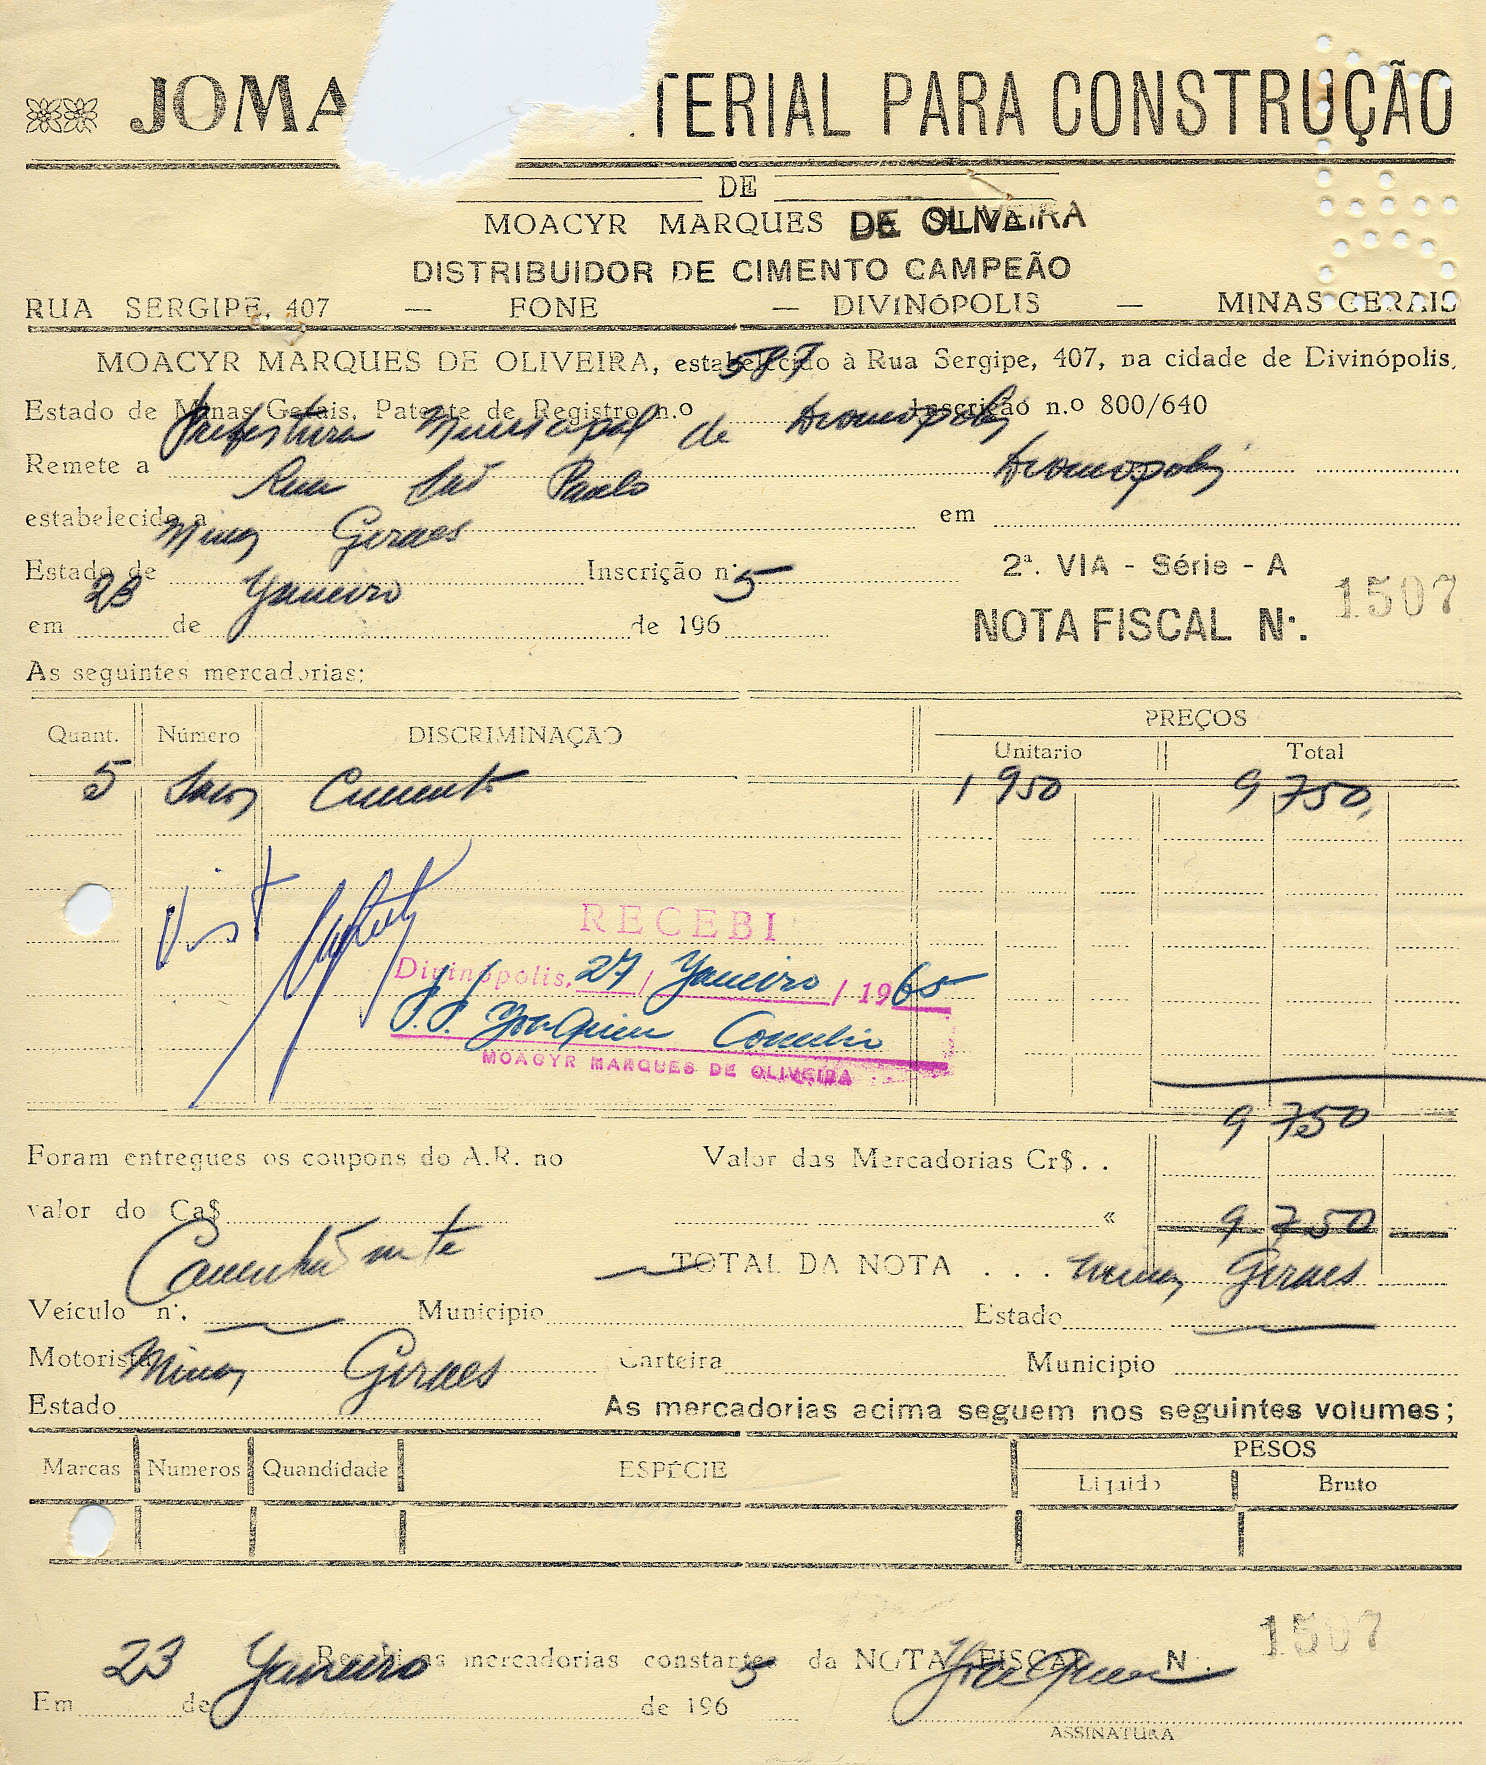 JOMA TERIAL PARA CONSTRUÇÃO
DE
MOACYR MARQUES DE OLIVEIRA
DISTRIBUIDOR DE CIMENTO CAMPEÃO
RUA SERGIPE, 407 — FONE — DIVINÓPOLIS — MINAS GERAIS
MOACYR MARQUES DE OLIVEIRA, estabelecido à Rua Sergipe, 407, na cidade de Divinópolis,
587
Estado de Minas Gerais, Patente de Registro n.o Inscrição n.o 800/640
Prefeitura Municipal de Divinopolis
Remete a
Rua São Paulo Divinopolis
estabelecido a em
Minas Geraes
Estado de Inscrição nº 2ª. VIA - Série - A
23 Janeiro 5
em de de 196 NOTA FISCAL Nº. 1507
As seguintes mercadorias:
Quant. Número DISCRIMINAÇÃO PREÇOS
Unitario Total
5 Sacos Cimento 1 950 9 750,
Visto
RECEBI
Divinópolis, 27 / Janeiro / 1965
Joaquim
MOACYR MARQUES DE OLIVEIRA
9 750
Foram entregues os coupons do A.R. no Valor das Mercadorias Cr$ . .
valor do Ca$ « 9 750
TOTAL DA NOTA . . .
Minas Geraes
Veículo nº. Municipio Estado
Motorista Carteira Municipio
Minas Geraes
Estado As mercadorias acima seguem nos seguintes volumes;
Marcas Numeros Quandidade ESPÉCIE PESOS
Liquido Bruto
Recebi as mercadorias constantes da NOTA FISCAL N. 1507
23 Janeiro 5 Joaquim
Em de de 196
ASSINATURA